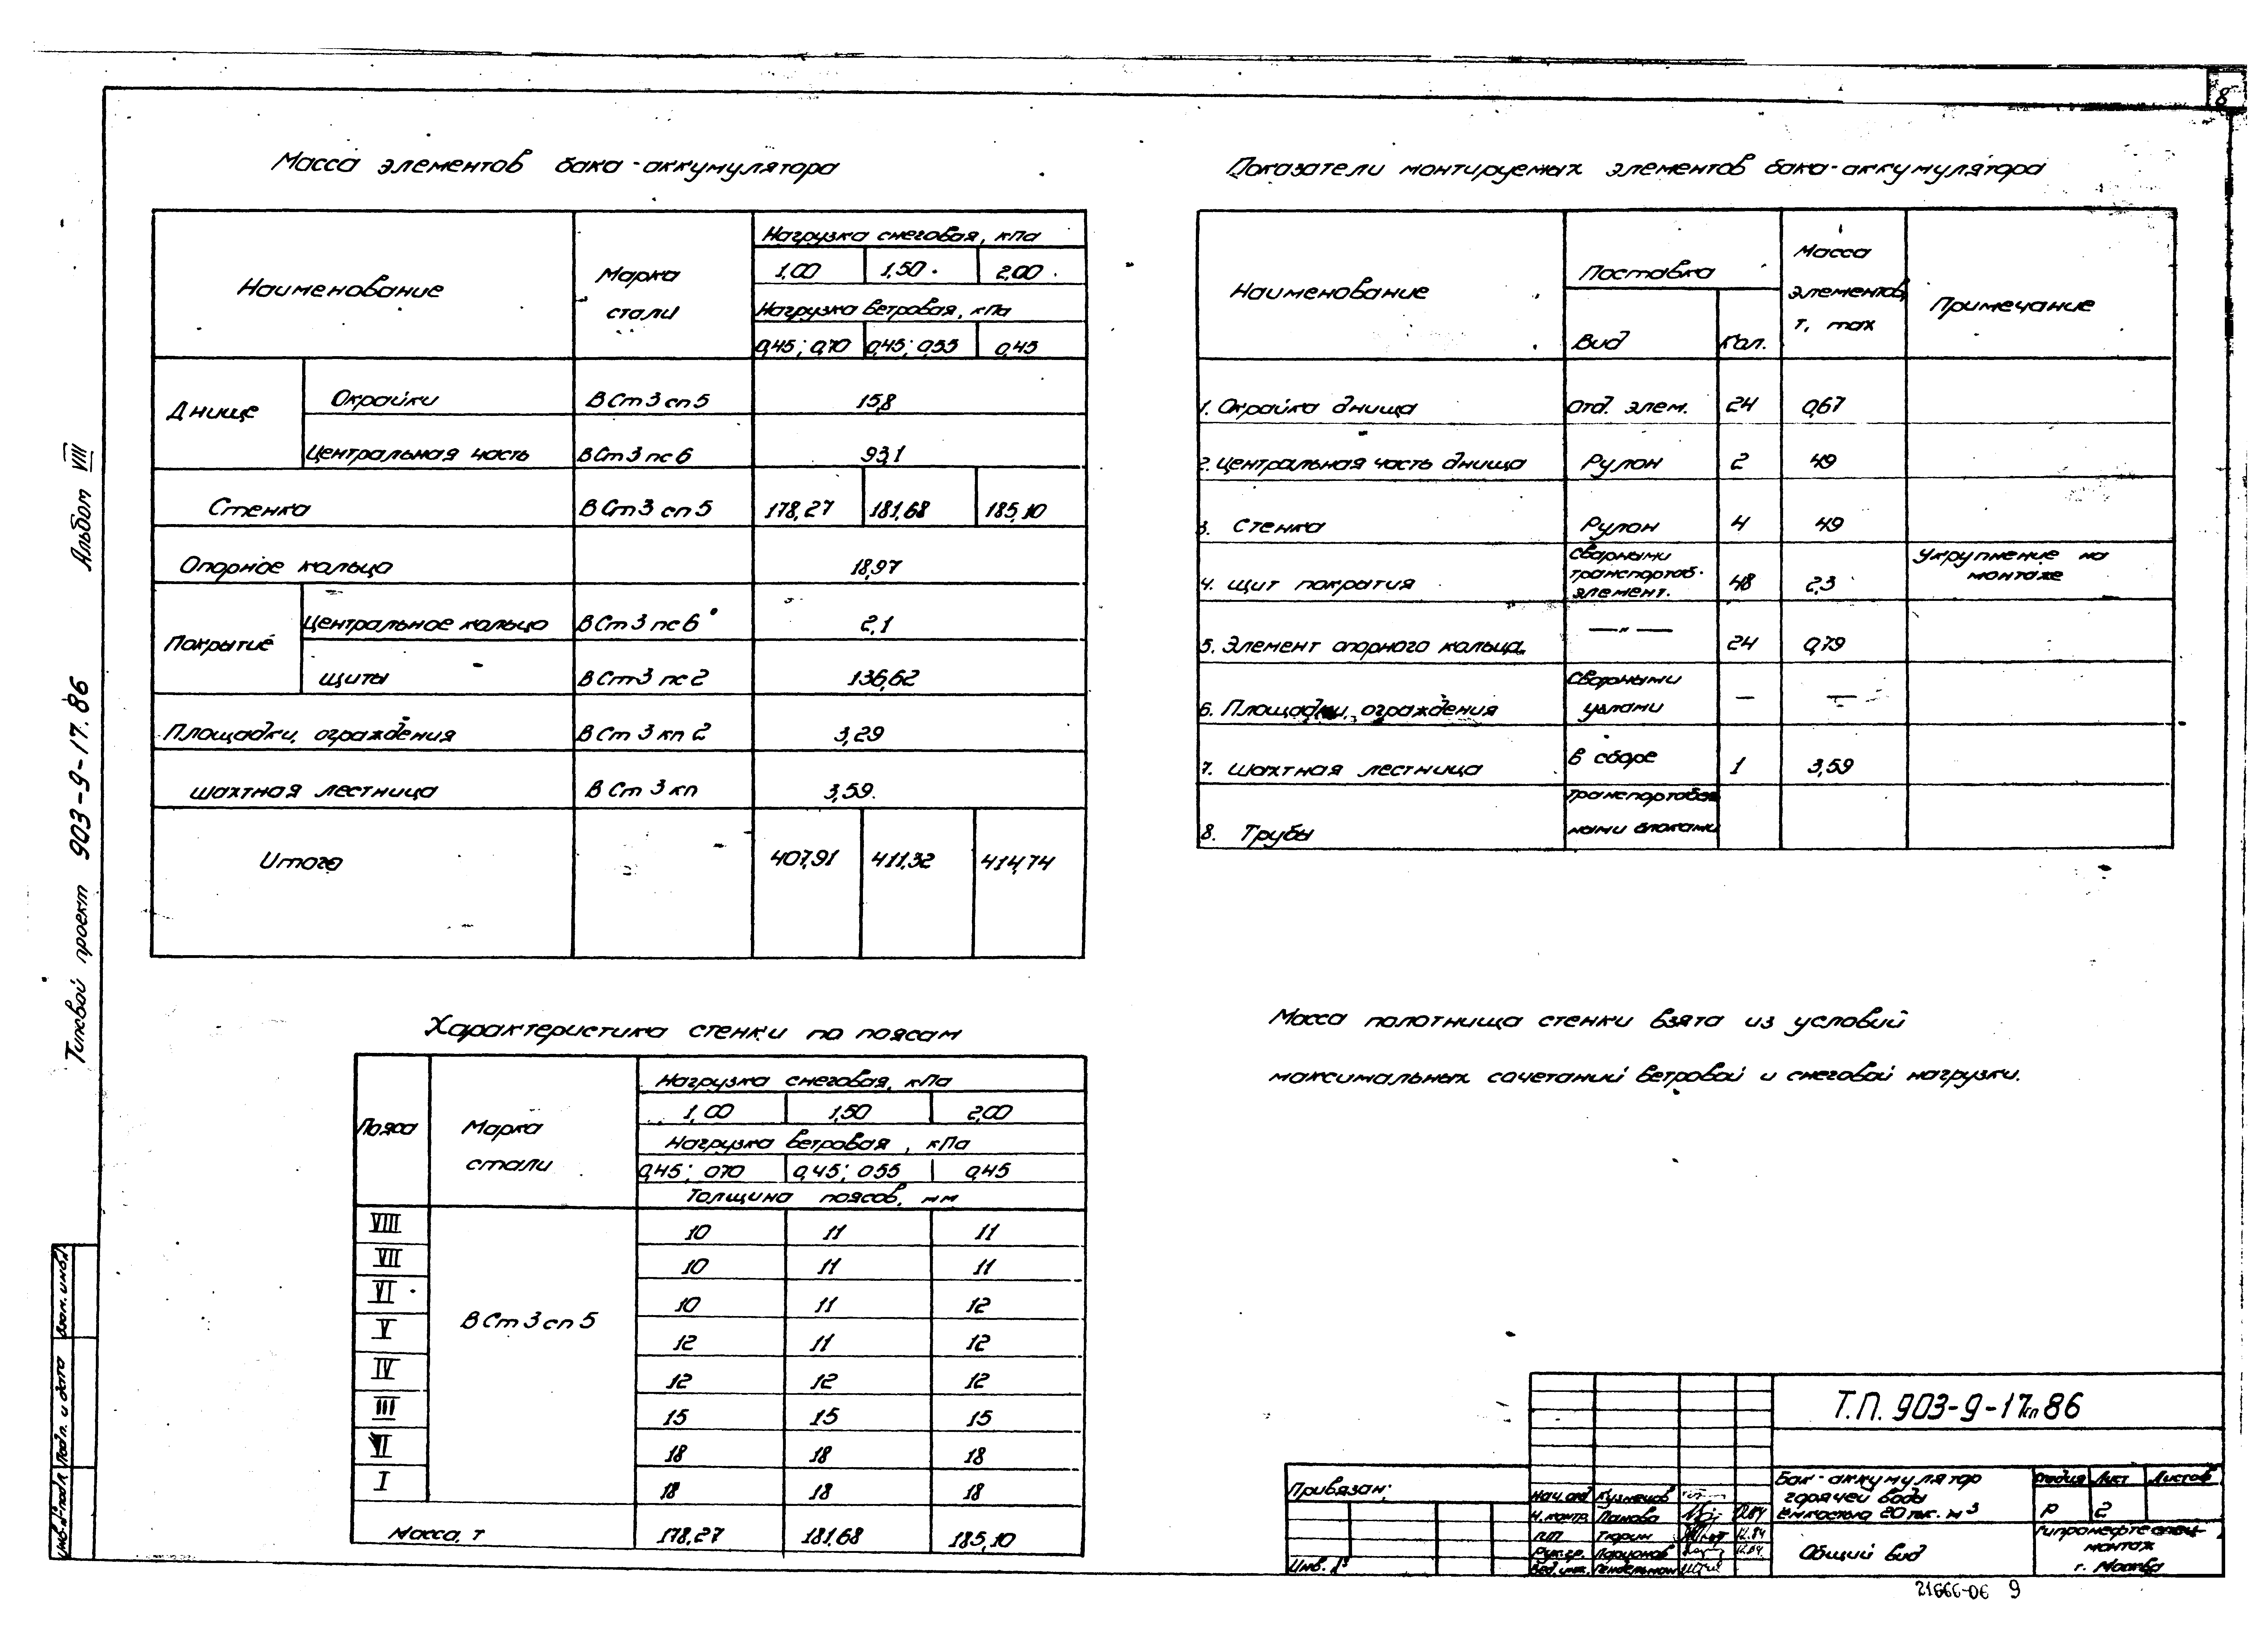 8
Масса элементов бака-аккумулятора
Наименование
Марка стали
Нагрузка снеговая, кПа
1,00 1,50 2,00
Нагрузка ветровая, кПа
0,45; 0,70 0,45; 0,55 0,45
Днище Окрайки ВСт3сп5 15,8
Центральная часть ВСт3пс6 93,1
Стенка ВСт3сп5 178,27 181,68 185,10
Опорное кольцо 18,97
Покрытие Центральное кольцо ВСт3пс6 2,1
Щиты ВСт3пс2 136,62
Площадки, ограждения ВСт3кп2 3,29
Шахтная лестница ВСт3кп 3,59
Итого 407,91 411,32 414,74
Показатели монтируемых элементов бака-аккумулятора
Наименование
Поставка
Вид Кол.
Масса элементов, т, max
Примечание
1. Окрайка днища Отд. элем. 24 0,67
2. Центральная часть днища Рулон 2 49
3. Стенка Рулон 4 49
4. Щит покрытия Сварными транспортаб. элемент. 48 2,3 Укрупнение на монтаже
5. Элемент опорного кольца —"— 24 0,79
6. Площадки, ограждения Сварными узлами — —
7. Шахтная лестница В сборе 1 3,59
8. Трубы
Характеристика стенки по поясам
Пояса
Марка стали
Нагрузка снеговая, кПа
1,00 1,50 2,00
Нагрузка ветровая, кПа
0,45; 070 0,45; 055 0,45
Толщина поясов, мм
VIII 10 11 11
VII 10 11 11
VI 10 11 12
V 12 11 12
ВСт3сп5
IV 12 12 12
III 15 15 15
II 18 18 18
I 18 18 18
Масса, т 178,27 181,68 185,10
Масса полотнища стенки взята из условий
максимальных сочетаний ветровой и снеговой нагрузки.
Типовой проект 903-9-17.86 Альбом VIII
Взам. инв.
Подп. и дата
Инв. № подл.
Привязан:
Инв. №
Нач. отд Кузнецов
Н. контр. Панова 12.84
ГИП Тюрин 12.84
Рук. гр. Ларионов 12.84
Вед. инж. Гендельман
Т.П. 903-9-17 86
Бак-аккумулятор
горячей воды
емкостью 20 тыс. м³
Общий вид
Стадия Лист Листов
Р 2
Гипронефтеспец-
монтаж
г. Москва
21666-06 9